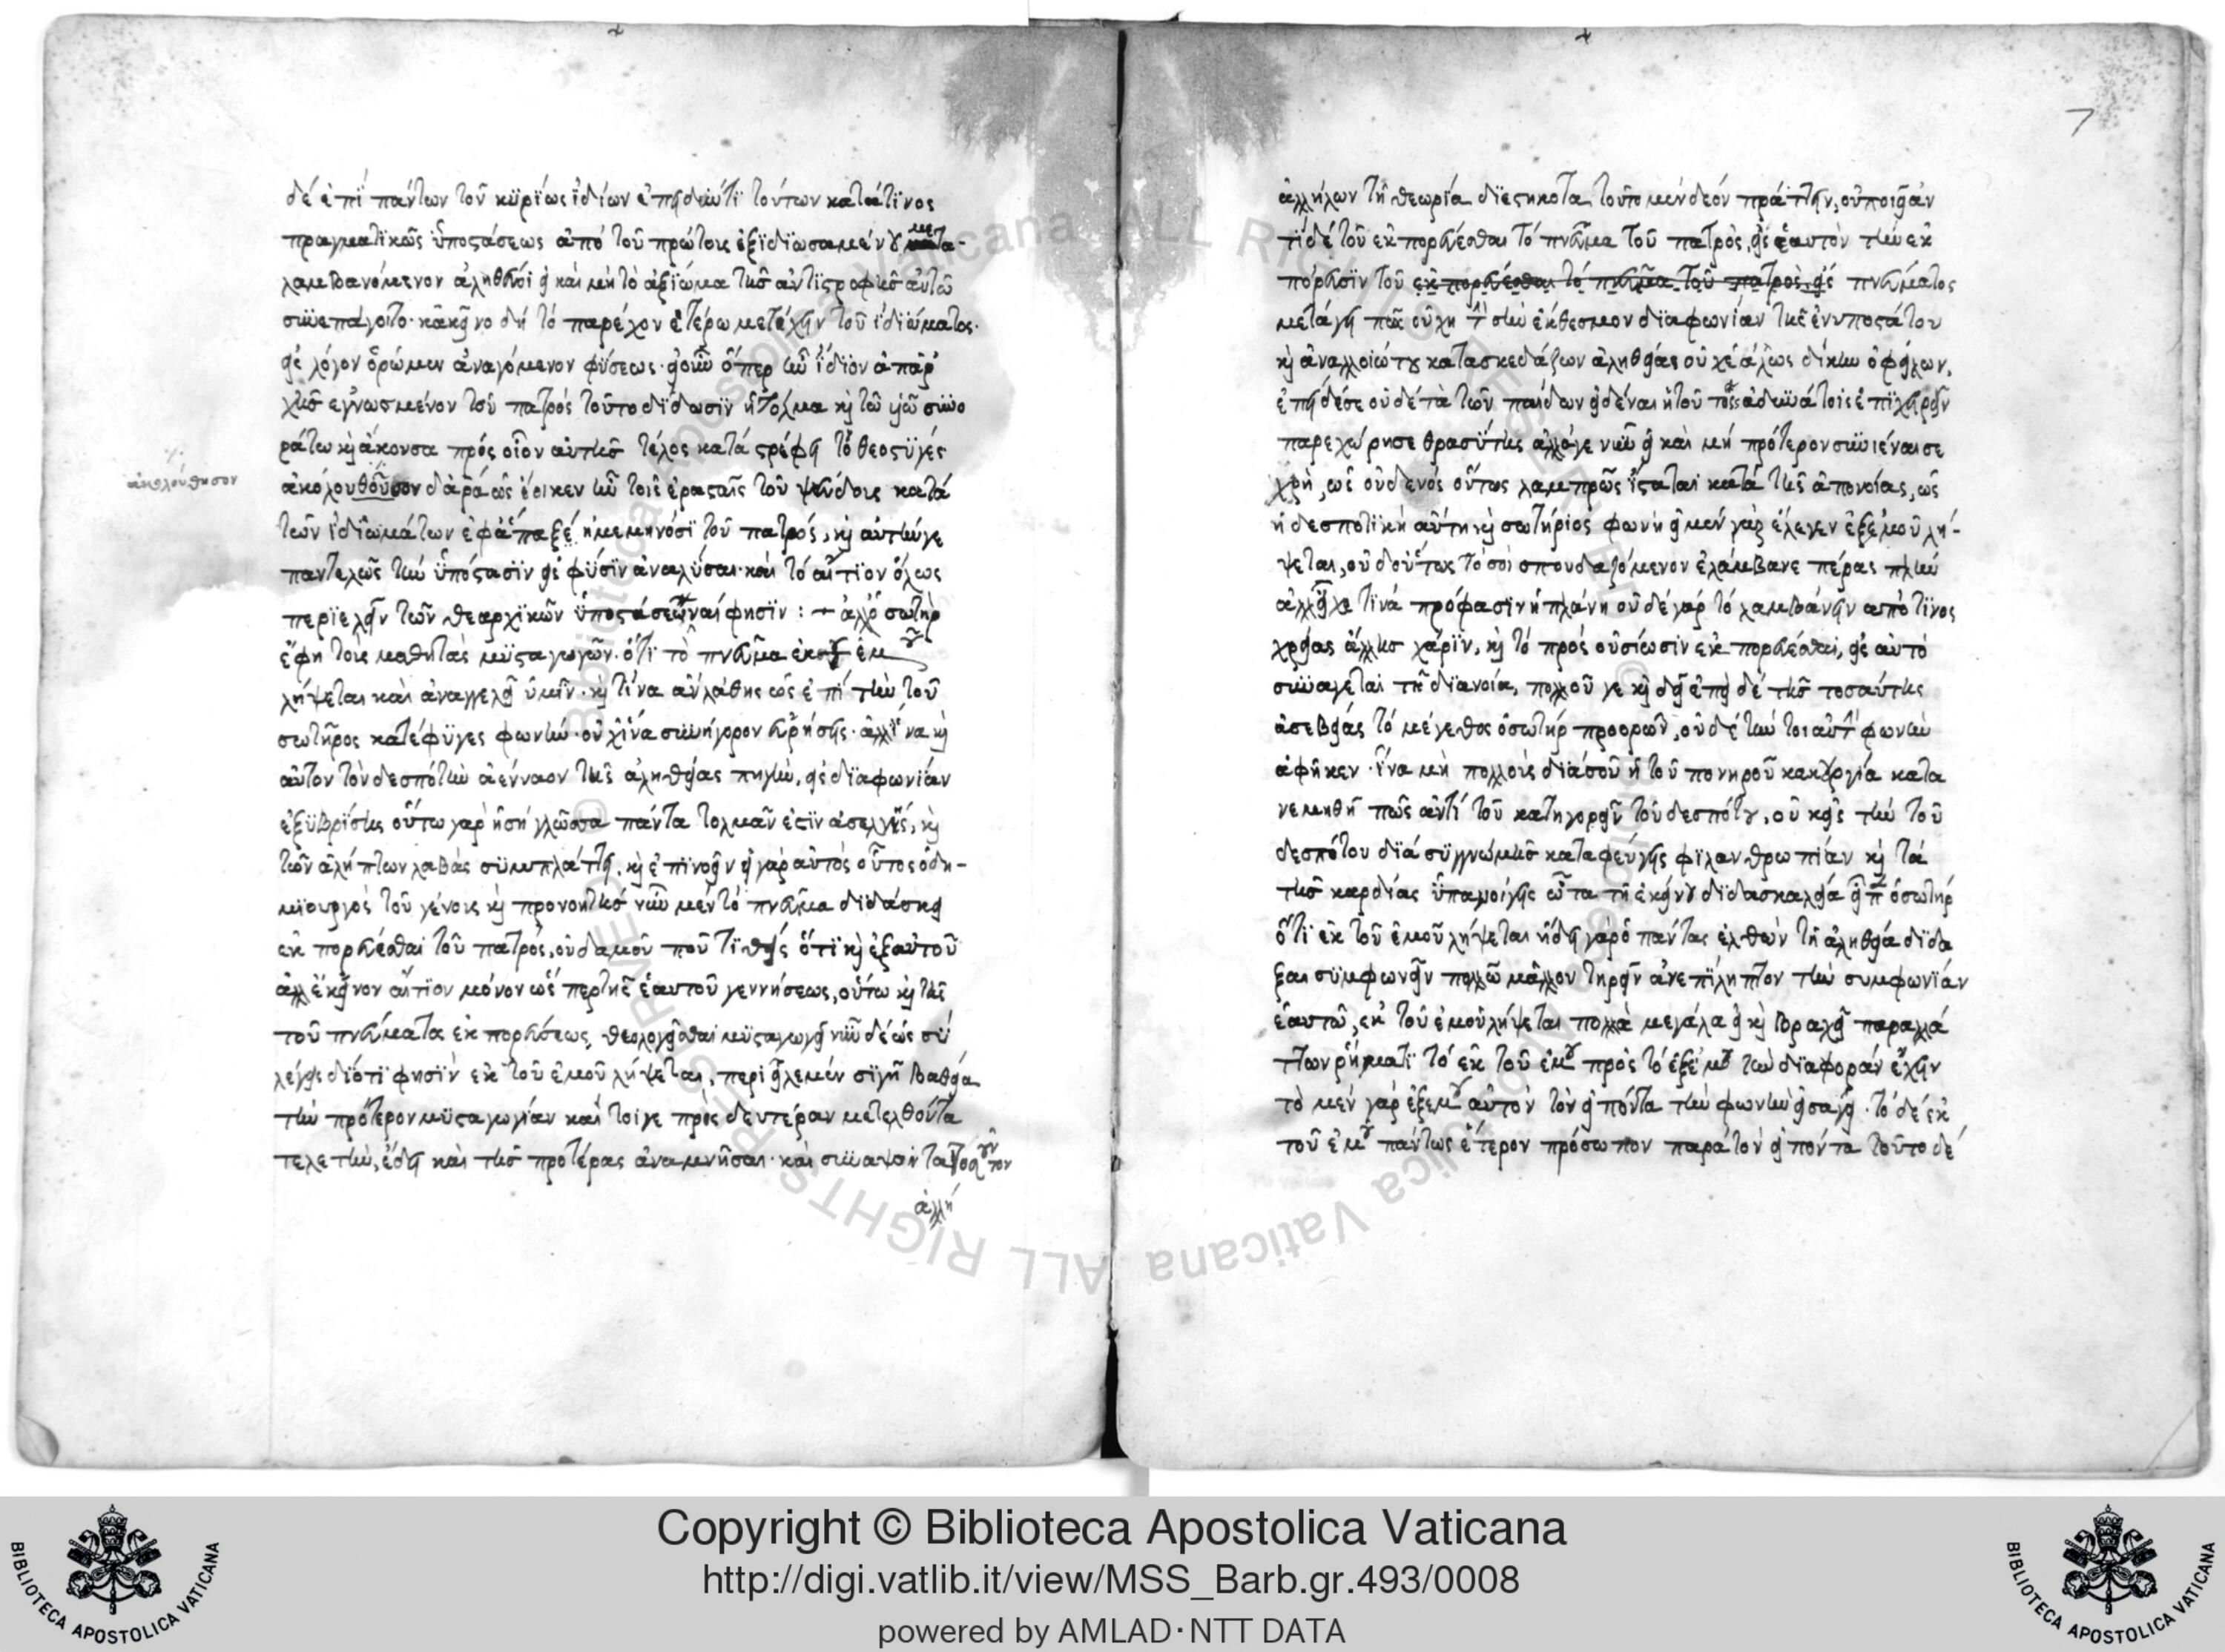 δέ ἐπὶ πάντων τοῦ κϋρίως ἰδίων ἐπειδὰν τι τούτων κατά τινος
πραγματικῶς ὑποστάσεως ἀπό τοῦ πρώτοις ἐξϊδϊωσαμένου μετα-
λαμβανόμενον ἀληθεύοι εἰ καὶ μὴ τὸ ἀξίωμα τῆς ἀντιστροφῆς αὐτῶ
συνεπάγοιτο· κἀκεῖνο δὴ τό παρέχον ἑτέρω μετέχειν τοῦ ἰδιώματος·
εἰς λόγον ὁρῶμεν ἀναγόμενον φύσεως· εἰ οὖν ὅπερ ἦν ἴδιον ἀπαρ
χῆς ἐγνωσμένον τοῦ πατρός τοῦτο δίδωσϊν ἡ τόλμα καὶ τῶ υἱῶ συνο
ράτω καὶ ἄκουσα πρός οἷον αὐτῆς τέλος κατά στρέφει τὸ θεοστϋγές
ἀκόλουθοῦσον δἄρα ὡς ἔοικεν ἦν τοῖς ἐρασταῖς τοῦ ψεύδους κατά
τῶν ἰδϊωμάτων ἐφάπαξέ ἡμεμηνόσϊ τοῦ πατρός, καὶ αὐτήν γε
παντελῶς τήν ὑπόστασϊν εἰς φύσϊν ἀναλύσαι· καὶ τό αἴτϊον ὅλως
περϊελεῖν τῶν θεαρχϊκῶν ὑποστάσεων ναί φησϊν : + ἀλλ' ὁ σωτὴρ
ἔφη τοὺς μαθητὰς μϋσταγωγῶν· ὅτϊ τὸ πνεῦμα ἐκ τοῦ ἐμοῦ
λήψεται καὶ ἀναγγελεῖ ὑμῖν· καὶ τίνα ἂν λάθης ὡς ἐπί τὴν τοῦ
σωτῆρος κατέφϋγες φωνήν· οὐχ ἵνα συνήγορον εὑρήσης· ἀλλ' ἵνα καὶ
αὐτον τὸν δεσπότην ἀένναον τῆς ἀληθείας πηγὴν, εἰς διαφωνίαν
ἐξϋβρίσης οὕτω γαρ ἡ σὴ γλῶσσα πάντα τολμᾶν ἐστϊν ἀσελγής, καὶ
τῶν ἀλήπτων λαβὰς σϋμπλάττει, καὶ ἐπϊνοεῖν εἰ γὰρ αὐτὸς οὗτος ὁδη-
μϊουργὸς τοῦ γένους καὶ προνοητὴς νῦν μέν τό πνεῦμα διδάσκει
ἐκ πορεύεσθαι τοῦ πατρός, οὐδαμοῦ που τϊθείς ὅτϊ καὶ ἐξαυτοῦ
ἀλλ' ἐκεῖνον αἴτϊον μόνον ὡς περ τῆς ἑαυτοῦ γεννήσεως, οὕτω καὶ τῆς
τοῦ πνεύματος ἐκ πορεύσεως, θεολογεῖσθαι μϋσταγωγεῖ νῦν δέ ὡς σϋ
λέγεις διότϊ φησὶν ἐκ τοῦ ἐμοῦ λήψεται, περϊεῖλε μέν σϊγῆ βαθεία
τὴν πρότερον μϋσταγωγίαν καί τοι γε πρὸς δευτέραν μετελθόντα
τελετὴν, ἔδει καὶ τῆς προτέρας ἀναμνῆσαι· καὶ συνάψαι τα τοσοῦτον
ἀλλή
ἀκολούθησον
7
ἀλλήλων τῆ θεωρία διεστηκοτα τοῦτο μὲν δέον πράττειν, οὐ ποιεῖς ἀν
τϊ δέ τοῦ ἐκπορεύεσθαι τό πνεῦμα τοῦ πατρὸς, εἰς ἑαυτὸν τὴν ἐκ
πόρευσϊν τοῦ ἐκ πορεύεσθαι τό πνεῦμα τοῦ πατρὸς, εἰς πνεύματος
μετάγει πῶς οὐχὶ τὴν ἔκθεσμον διαφωνίαν τῆς ἐνυποστάτου
καὶ ἀναλλοιώτου κατασκεδάζων ἀληθείας οὐχ ἑάλως δίκην ὀφείλων,
ἐπειδέ σε οὐδέ τὰ τῶν παίδων εἰδέναι ἡ τοῦ τοῖς ἀδυνάτοις ἐπϊχειρεῖν
παρεχώρησε θρασύτης ἀλλάγε νῦν εἰ καὶ μή πρότερον συνιέναι σε
χρὴ, ὡς οὐδενὸς οὕτως λαμπρῶς ἵσταται κατὰ τῆς ἀπονοίας, ὡς
ἡ δεσποτϊκὴ αὕτη καὶ σωτήριος φωνὴ εἰ μέν γὰρ ἔλεγεν ἐξεμοῦ λή-
ψεται, οὐδ' οὕτως τό σοὶ σπουδαζόμενον ἐλάμβανε πέρας πλήν
ἀλλ' εἶχε τϊνά πρόφασϊν ἡ πλάνη οὐδέ γάρ τό λαμβάνειν ἀπό τϊνος
χρείας ἄλλης χάρϊν, καὶ τό πρὸς οὐσίωσϊν ἐκ πορεύεσθαι, εἰς αὐτό
συνάγεται τῆ δϊανοία, πολλοῦ γε καὶ δεῖ ἐπεὶ δέ τῆς τοσαύτης
ἀσεβείας τό μέγεθος ὁσωτήρ προορῶν, οὐδέ τήν τοιαύτην φωνὴν
ἀφῆκεν· ἵνα μὴ πολλούς διάσοῦ ἡ τοῦ πονηροῦ κακουργία κατα
νεμηθῆ πῶς ἀντί τοῦ κατηγορεῖν τοῦ δεσπότου, οὐκ εἰς τήν τοῦ
δεσπότου διά σϋγγνώμης καταφεύγεις φϊλανθρωπίαν καὶ τά
τῆς καρδίας ὑπανοίγεις ὦτα τῆ ἐκείνου διδασκαλεία εἶπεν ὁσωτήρ
ὅτϊ ἐκ τοῦ ἐμοῦ λήψεται ἤδει γὰρ ὁ πάντας ἐλθὼν τῆ ἀληθεία δϊδα
ξαι σϋμφωνεῖν πολλῶ μᾶλλον τηρεῖν ἀνεπϊληπτον τὴν συμφωνϊαν
ἑαυτῶ, ἐκ τοῦ ἐμοῦ λήψεται πολλὰ μεγάλα εἰ καὶ βραχεῖ παραλλά
ττων ρήματϊ τό ἐκ τοῦ ἐμοῦ πρὸς τό ἐξεμοῦ τὴν διαφοράν ἔχειν
τὸ μέν γάρ ἐξεμοῦ αὐτόν τὸν εἰπόντα τὴν φωνὴν εἰσαγει· τό δέ ἐκ
τοῦ ἐμοῦ πάντως ἕτερον πρόσωπον παρά τόν εἰπόντα τοῦτο δέ
Copyright © Biblioteca Apostolica Vaticana
http://digi.vatlib.it/view/MSS_Barb.gr.493/0008
powered by AMLAD·NTT DATA
BIBLIOTECA APOSTOLICA VATICANA
BIBLIOTECA APOSTOLICA VATICANA